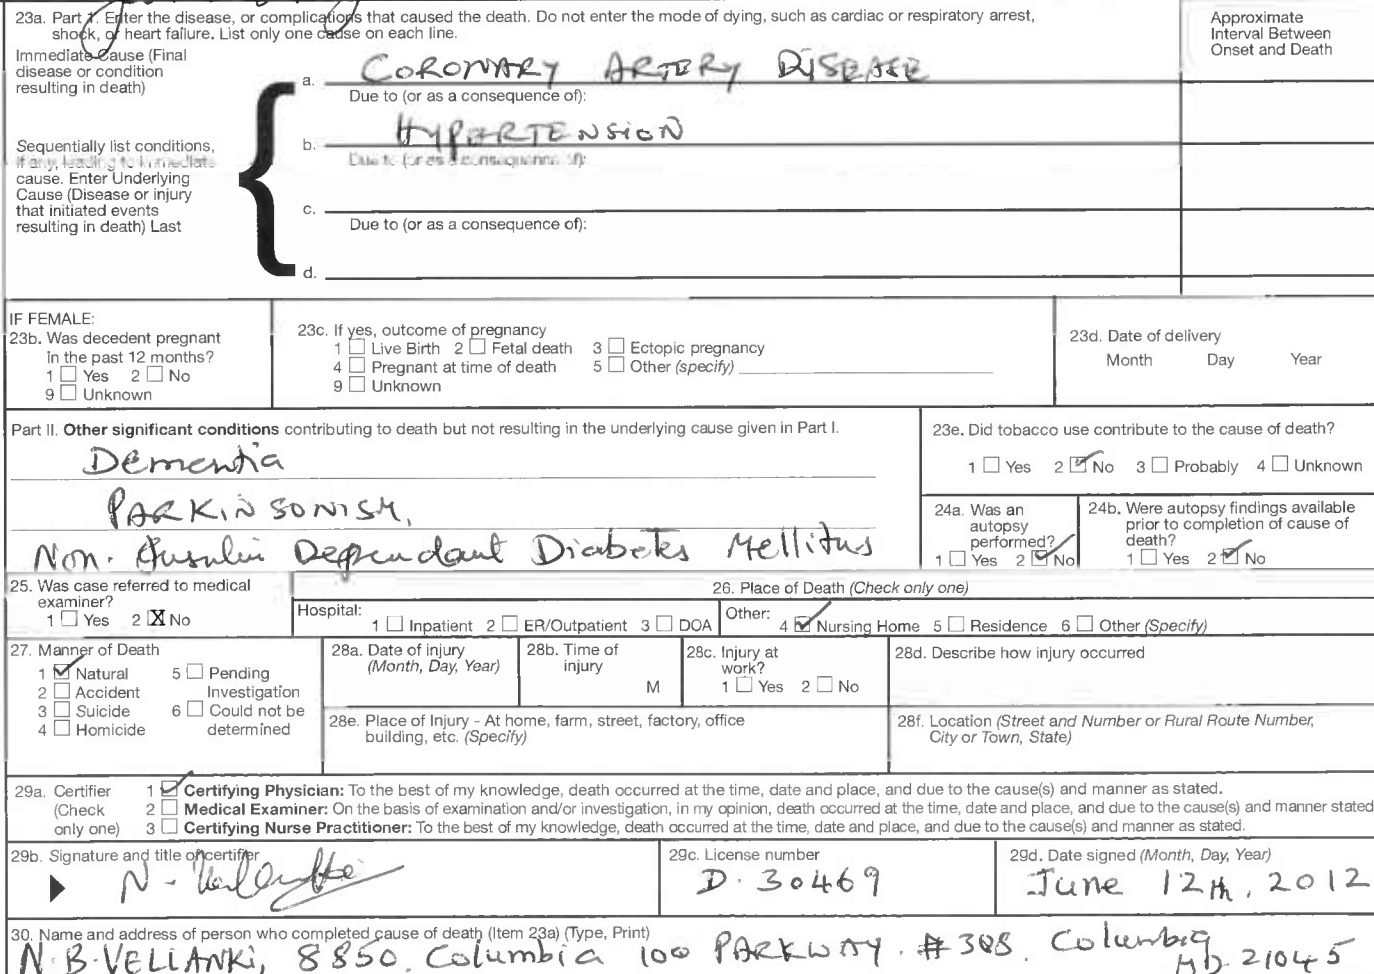 23a. Part 1. Enter the disease, or complications that caused the death. Do not enter the mode of dying, such as cardiac or respiratory arrest,
shock, or heart failure. List only one cause on each line.
Approximate
Interval Between
Onset and Death
Immediate Cause (Final
disease or condition
resulting in death)
a. CORONARY ARTERY DISEASE
Due to (or as a consequence of):
Sequentially list conditions,
if any, leading to immediate
cause. Enter Underlying
Cause (Disease or injury
that initiated events
resulting in death) Last
b. HYPERTENSION
Due to (or as a consequence of):
c.
Due to (or as a consequence of):
d.
IF FEMALE:
23b. Was decedent pregnant
in the past 12 months?
1 ☐ Yes 2 ☐ No
9 ☐ Unknown
23c. If yes, outcome of pregnancy
1 ☐ Live Birth 2 ☐ Fetal death 3 ☐ Ectopic pregnancy
4 ☐ Pregnant at time of death 5 ☐ Other (specify)
9 ☐ Unknown
23d. Date of delivery
Month Day Year
Part II. Other significant conditions contributing to death but not resulting in the underlying cause given in Part I.
Dementia
PARKINSONISM,
Non-Insulin Dependant Diabetes Mellitus
23e. Did tobacco use contribute to the cause of death?
1 ☐ Yes 2 ☑ No 3 ☐ Probably 4 ☐ Unknown
24a. Was an
autopsy
performed?
1 ☐ Yes 2 ☑ No
24b. Were autopsy findings available
prior to completion of cause of
death?
1 ☐ Yes 2 ☑ No
25. Was case referred to medical
examiner?
1 ☐ Yes 2 X No
26. Place of Death (Check only one)
Hospital:
1 ☐ Inpatient 2 ☐ ER/Outpatient 3 ☐ DOA
Other:
4 ☑ Nursing Home 5 ☐ Residence 6 ☐ Other (Specify)
27. Manner of Death
1 ☑ Natural 5 ☐ Pending
2 ☐ Accident Investigation
3 ☐ Suicide 6 ☐ Could not be
4 ☐ Homicide determined
28a. Date of injury
(Month, Day, Year)
28b. Time of
injury
M
28c. Injury at
work?
1 ☐ Yes 2 ☐ No
28d. Describe how injury occurred
28e. Place of Injury - At home, farm, street, factory, office
building, etc. (Specify)
28f. Location (Street and Number or Rural Route Number,
City or Town, State)
29a. Certifier
(Check
only one)
1 ☑ Certifying Physician: To the best of my knowledge, death occurred at the time, date and place, and due to the cause(s) and manner as stated.
2 ☐ Medical Examiner: On the basis of examination and/or investigation, in my opinion, death occurred at the time, date and place, and due to the cause(s) and manner stated
3 ☐ Certifying Nurse Practitioner: To the best of my knowledge, death occurred at the time, date and place, and due to the cause(s) and manner as stated.
29b. Signature and title of certifier
N.
29c. License number
D.30469
29d. Date signed (Month, Day, Year)
June 12th, 2012
30. Name and address of person who completed cause of death (Item 23a) (Type, Print)
N.B.VELLANKI, 8850, Columbia 100 PARKWAY. #308. Columbia
MD. 21045